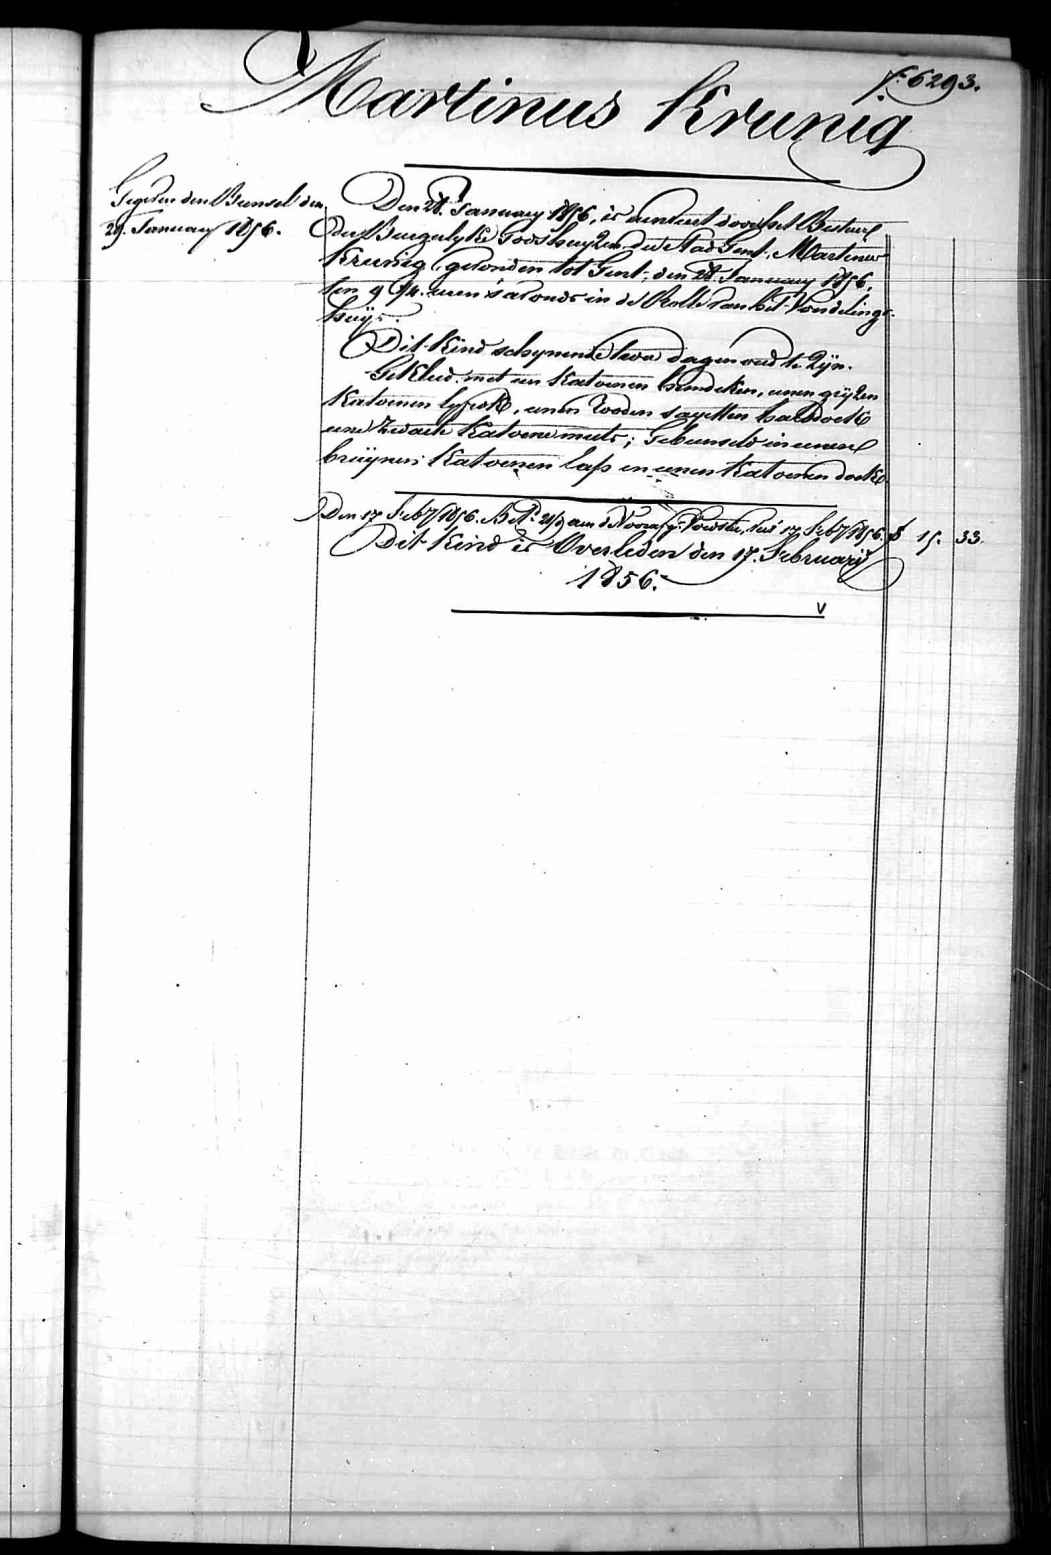 f: 6293.
Martinus Krunig
Gegeten den Bunsel den
29. January 1856.
Den 28. January 1856, is aenveert door het Bestuer
der Burgerlyke Godshuyzen der Stad Gent, Martinus
Krunig, gevonden tot Gent, den 28. January 1856,
ten 9 3/4. uren 's avonds in de Rolle van het Vondelings-
huÿs.
Dit Kind schynende twee dagen oud te Zÿn.
Gekleed met een Katoenen hemdeken, eenen grÿzen
Katoenen lyfrok, eenen Rooden sayetten halsdoek
eene Zwarte Katoene muts; Gebunseld in eenen
bruÿnen Katoenen lap en eenen Katoenen doek.
Den 17 Feb.y 1856. Bet. aen de Voorsz. Voedster, tot 17 Feb.y 1856. 15. 33.
Dit Kind is Overleden den 17. Februarÿ
1856.
v